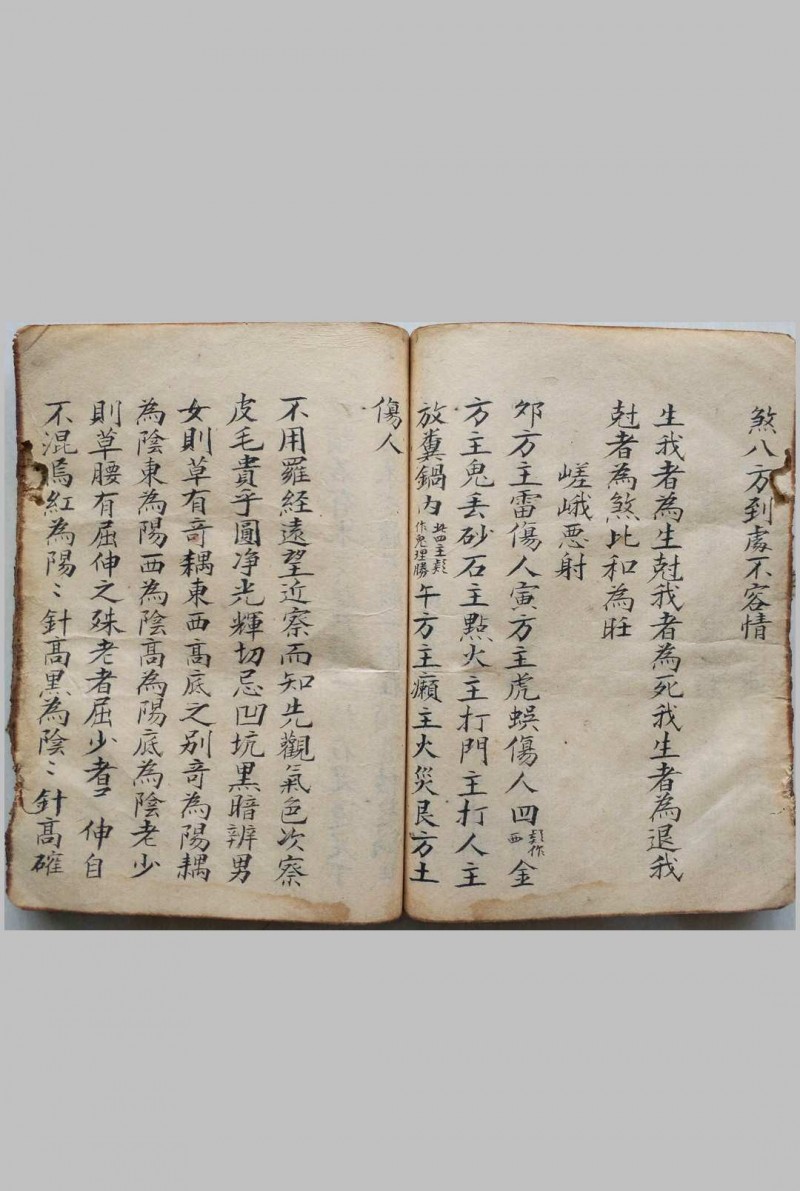 煞八方到處不容情
生我者為生尅我者為死我生者為退我
尅者為煞比和為旺
嵯峨惡射
夘方主雷傷人寅方主虎蜈傷人四彭作西金
方主鬼丢砂石主點火主打門主打人主
放糞鍋内此四主彭作鬼理勝午方主癩主火災艮方土
傷人
不用羅経遠望近察而知先觀氣色次察
皮毛貴乎圓净光輝切忌凹坑黑暗辨男
女則草有竒耦東西高底之别竒為陽耦
為陰東為陽西為陰高為陽底為陰老少
則草腰有屈伸之殊老者屈少者伸自
不混焉紅為陽〻針髙黑為陰〻針髙確